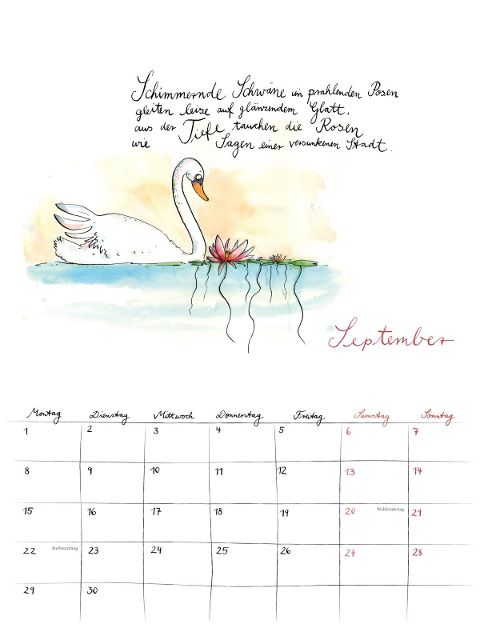 Schimmernde Schwäne in prahlenden Posen
gleiten leise auf glänzendem Glatt,
aus der Tiefe tauchen die Rosen
wie Sagen einer versunkenen Stadt.
September
Montag Dienstag Mittwoch Donnerstag Freitag Samstag Sonntag
1 2 3 4 5 6 7
8 9 10 11 12 13 14
15 16 17 18 19 20 Weltkindertag 21
22 Herbstanfang 23 24 25 26 27 28
29 30